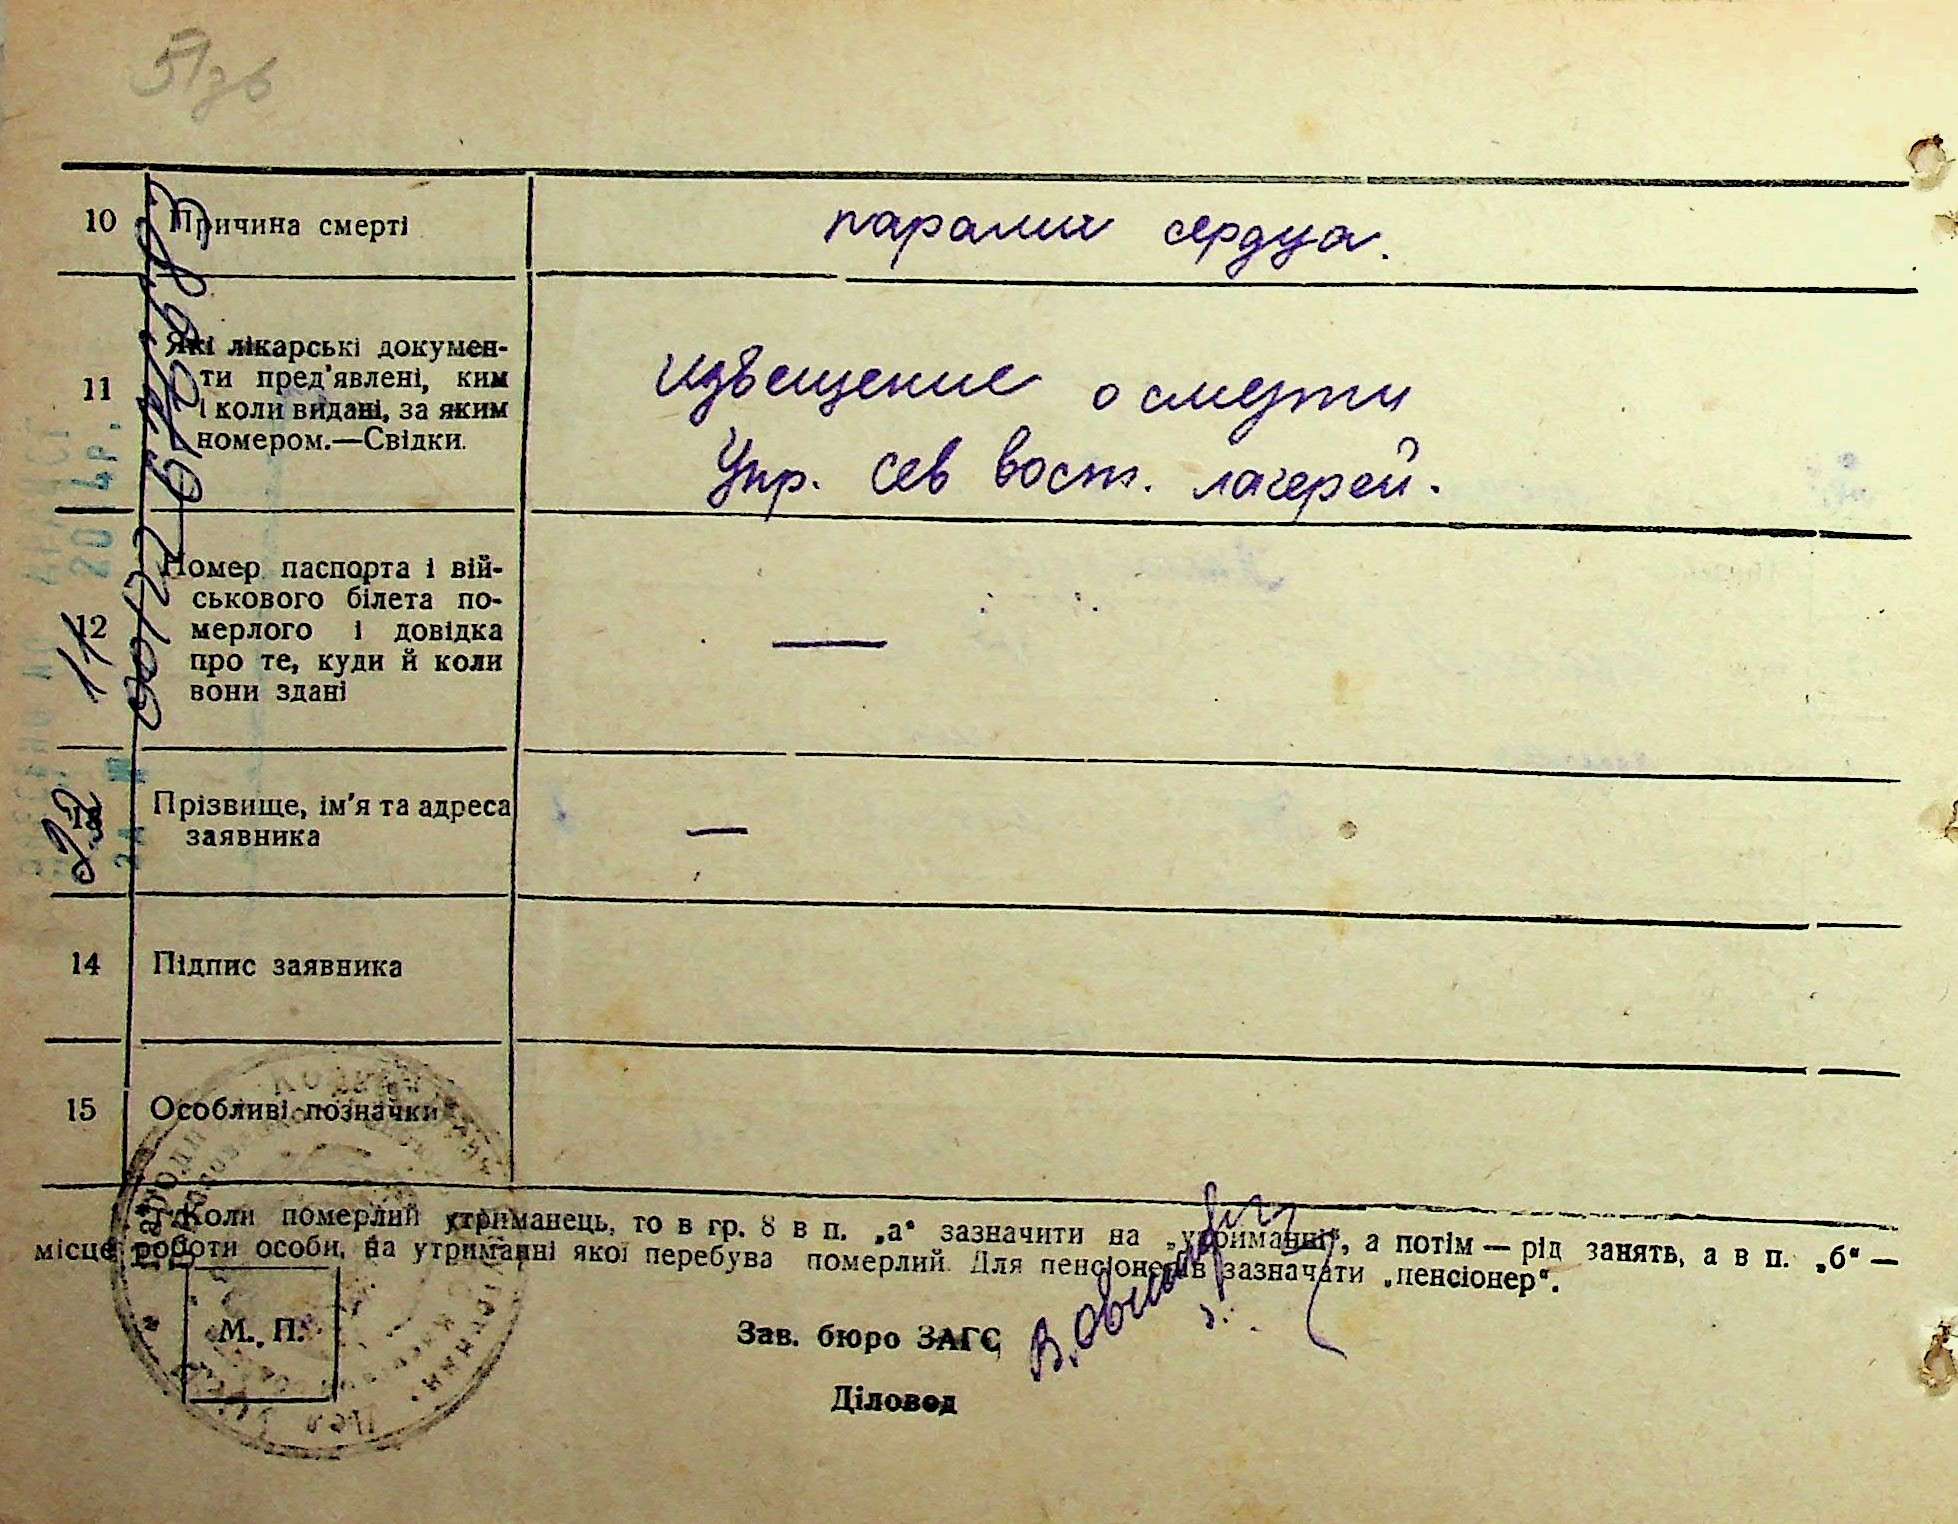 51зв
10 Причина смерті паралич сердца.
11 Які лікарські документи пред'явлені, ким і коли видані, за яким номером.—Свідки.
извещение о смерти
Упр. Сев вост. лагерей.
12 Номер паспорта і вій-
ськового білета по-
мерлого і довідка
про те, куди й коли
вони здані
—
13 Прізвище, ім'я та адреса
заявника
—
14 Підпис заявника
15 Особливі позначки
Коли померлий утриманець, то в гр. 8 в п. „а“ зазначити на „утриманні“, а потім — рід занять, а в п. „б“ —
місце роботи особи, на утриманні якої перебува померлий. Для пенсіонерів зазначати „пенсіонер“.
М. П.
Зав. бюро ЗАГС
Діловод